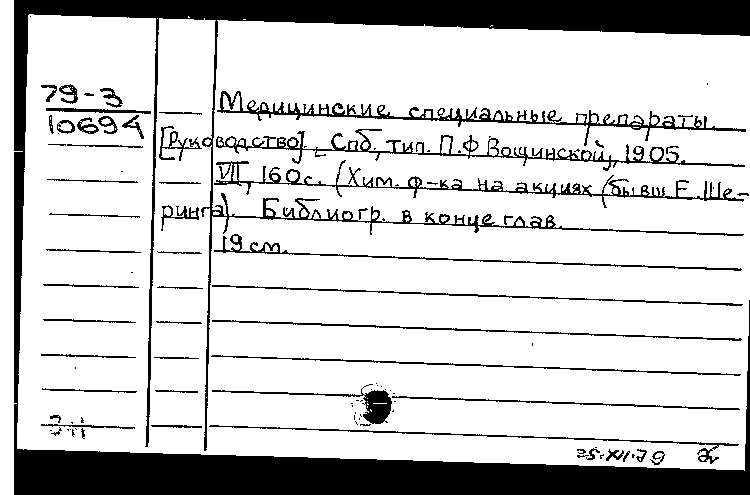 79-3
10694
Медицинские специальные препараты.
[Руководство], Спб, тип. П.Ф Вощинской, 1905.
VII, 160с. (Хим. ф-ка на акциях (бывш Е. Ше-
ринга). Библиогр. в конце глав.
19 см.
25.XII.79